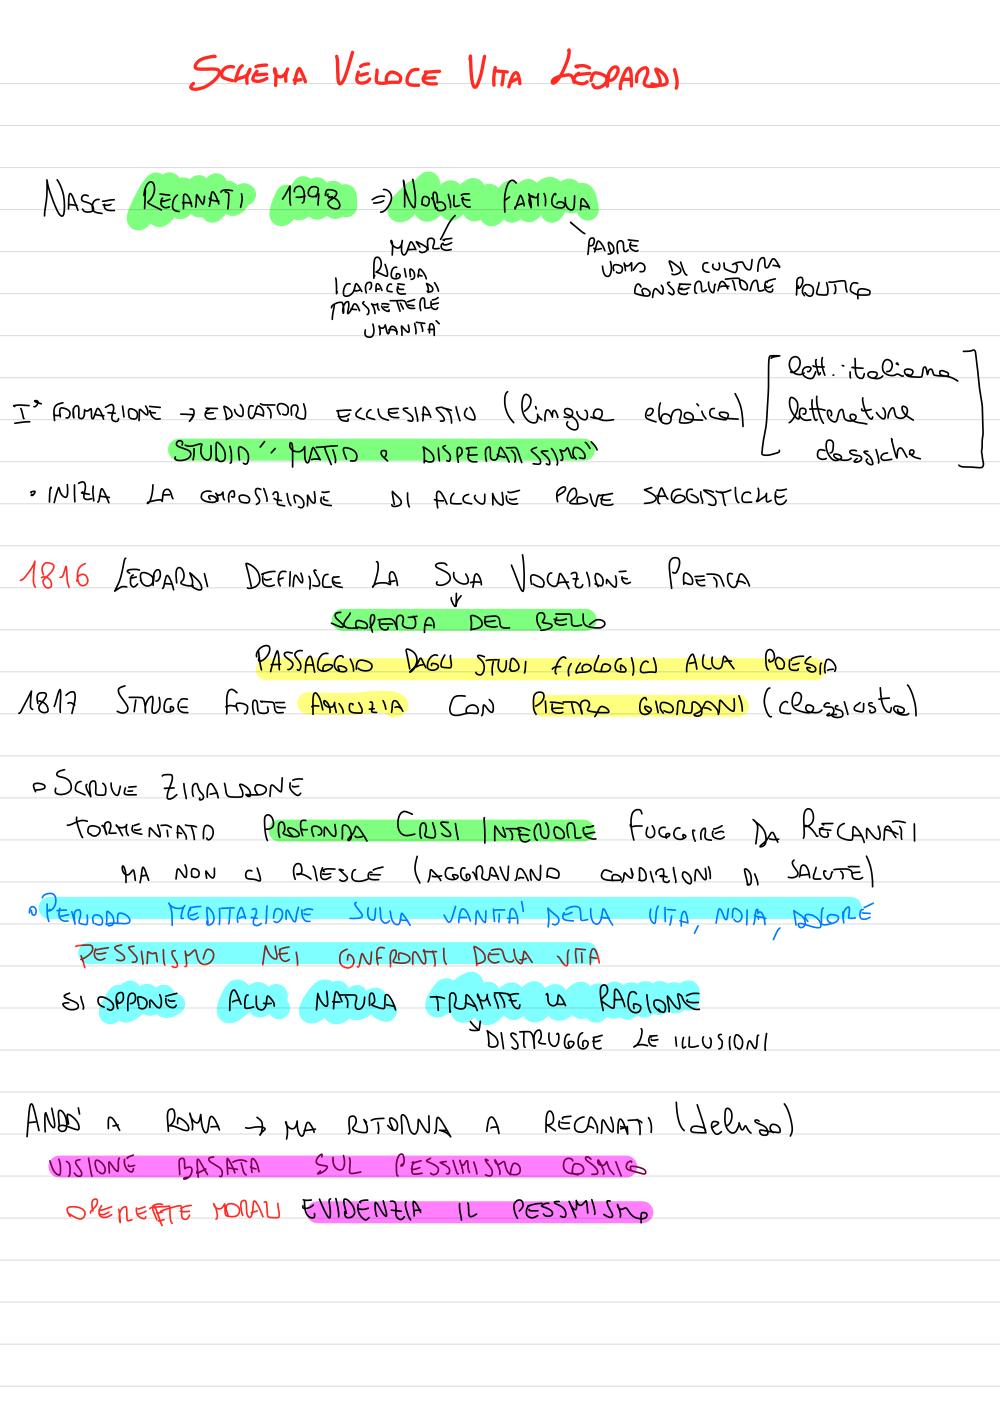 SCHEMA VELOCE VITA LEOPARDI
NASCE RECANATI 1798 => NOBILE FAMIGLIA
MADRE
RIGIDA
ICAPACE DI
TRASMETTERE
UMANITA'
PADRE
UOMO DI CULTURA
CONSERVATORE POLITICO
I° FORMAZIONE → EDUCATORI ECCLESIASTICI (lingua ebraica) [lett. italiana
letterature
classiche]
STUDIO "MATTO e DISPERATISSIMO"
• INIZIA LA COMPOSIZIONE DI ALCUNE PROVE SAGGISTICHE
1816 LEOPARDI DEFINISCE LA SUA VOCAZIONE POETICA
↓
SCOPERTA DEL BELLO
PASSAGGIO DAGLI STUDI FILOLOGICI ALLA POESIA
1817 STRINGE FORTE AMICIZIA CON PIETRO GIORDANI (classicista)
• SCRIVE ZIBALDONE
TORMENTATO PROFONDA CRISI INTERIORE FUGGIRE DA RECANATI
MA NON CI RIESCE (AGGRAVANO CONDIZIONI DI SALUTE)
• PERIODO MEDITAZIONE SULLA VANITA' DELLA VITA, NOIA, DOLORE
PESSIMISMO NEI CONFRONTI DELLA VITA
SI OPPONE ALLA NATURA TRAMITE LA RAGIONE
↘ DISTRUGGE LE ILLUSIONI
ANDO' A ROMA → MA RITORNA A RECANATI (deluso)
VISIONE BASATA SUL PESSIMISMO COSMICO
OPERETTE MORALI EVIDENZIA IL PESSIMISMO